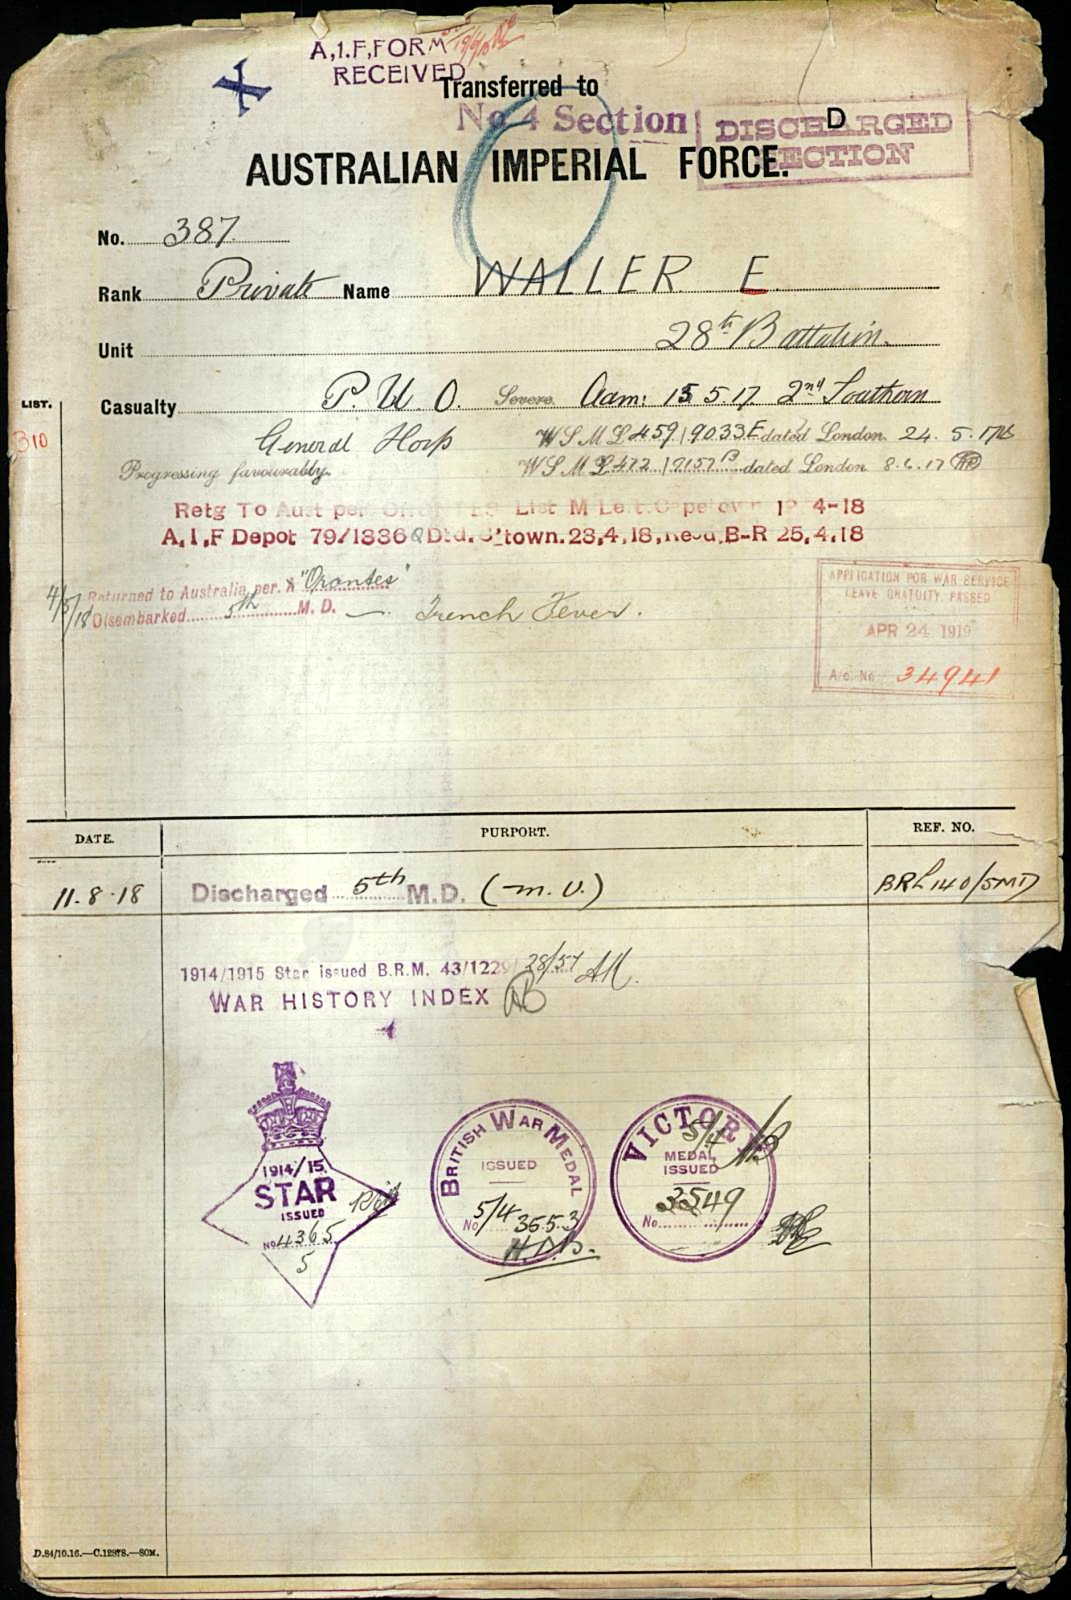 A.I.F. FORM
RECEIVED
Transferred to
No. 4 Section
D
DISCHARGED
SECTION
AUSTRALIAN IMPERIAL FORCE.
No. 387
Rank Private Name WALLER E.
Unit 28th Battalion.
LIST. Casualty P.U.O. Severe. Adm: 15 5.17 2nd Southern
B10 General Hosp WSML 459/9033E dated London 24.5.17
Progressing favourably. WSML 472/9157 dated London 8.6.17
Retg To Aust per List M Le t. Cape 4-18
A.I.F Depot 79/1336 Dtd. C'town. 23.4.18, Recd. B-R 25.4.18
Returned to Australia per. "Orantes"
4/5/18 Disembarked 5th M.D. — Trench Fever.
APPLICATION FOR WAR SERVICE
LEAVE GRATUITY. PASSED
APR 24 1919
A/c. No 34941
DATE. PURPORT. REF. NO.
11.8.18 Discharged 5th M.D. (M.U.) BRL 140/5MD
1914/1915 Star issued B.R.M. 43/1229 28/57
WAR HISTORY INDEX
1914/15.
STAR
ISSUED
No 4365
5
BRITISH WAR MEDAL
ISSUED
No 5/4 3653
H.D.B.
VICTORY
5/4
MEDAL
ISSUED
3549
No.
D.84/10.16.—C.12878.—50M.